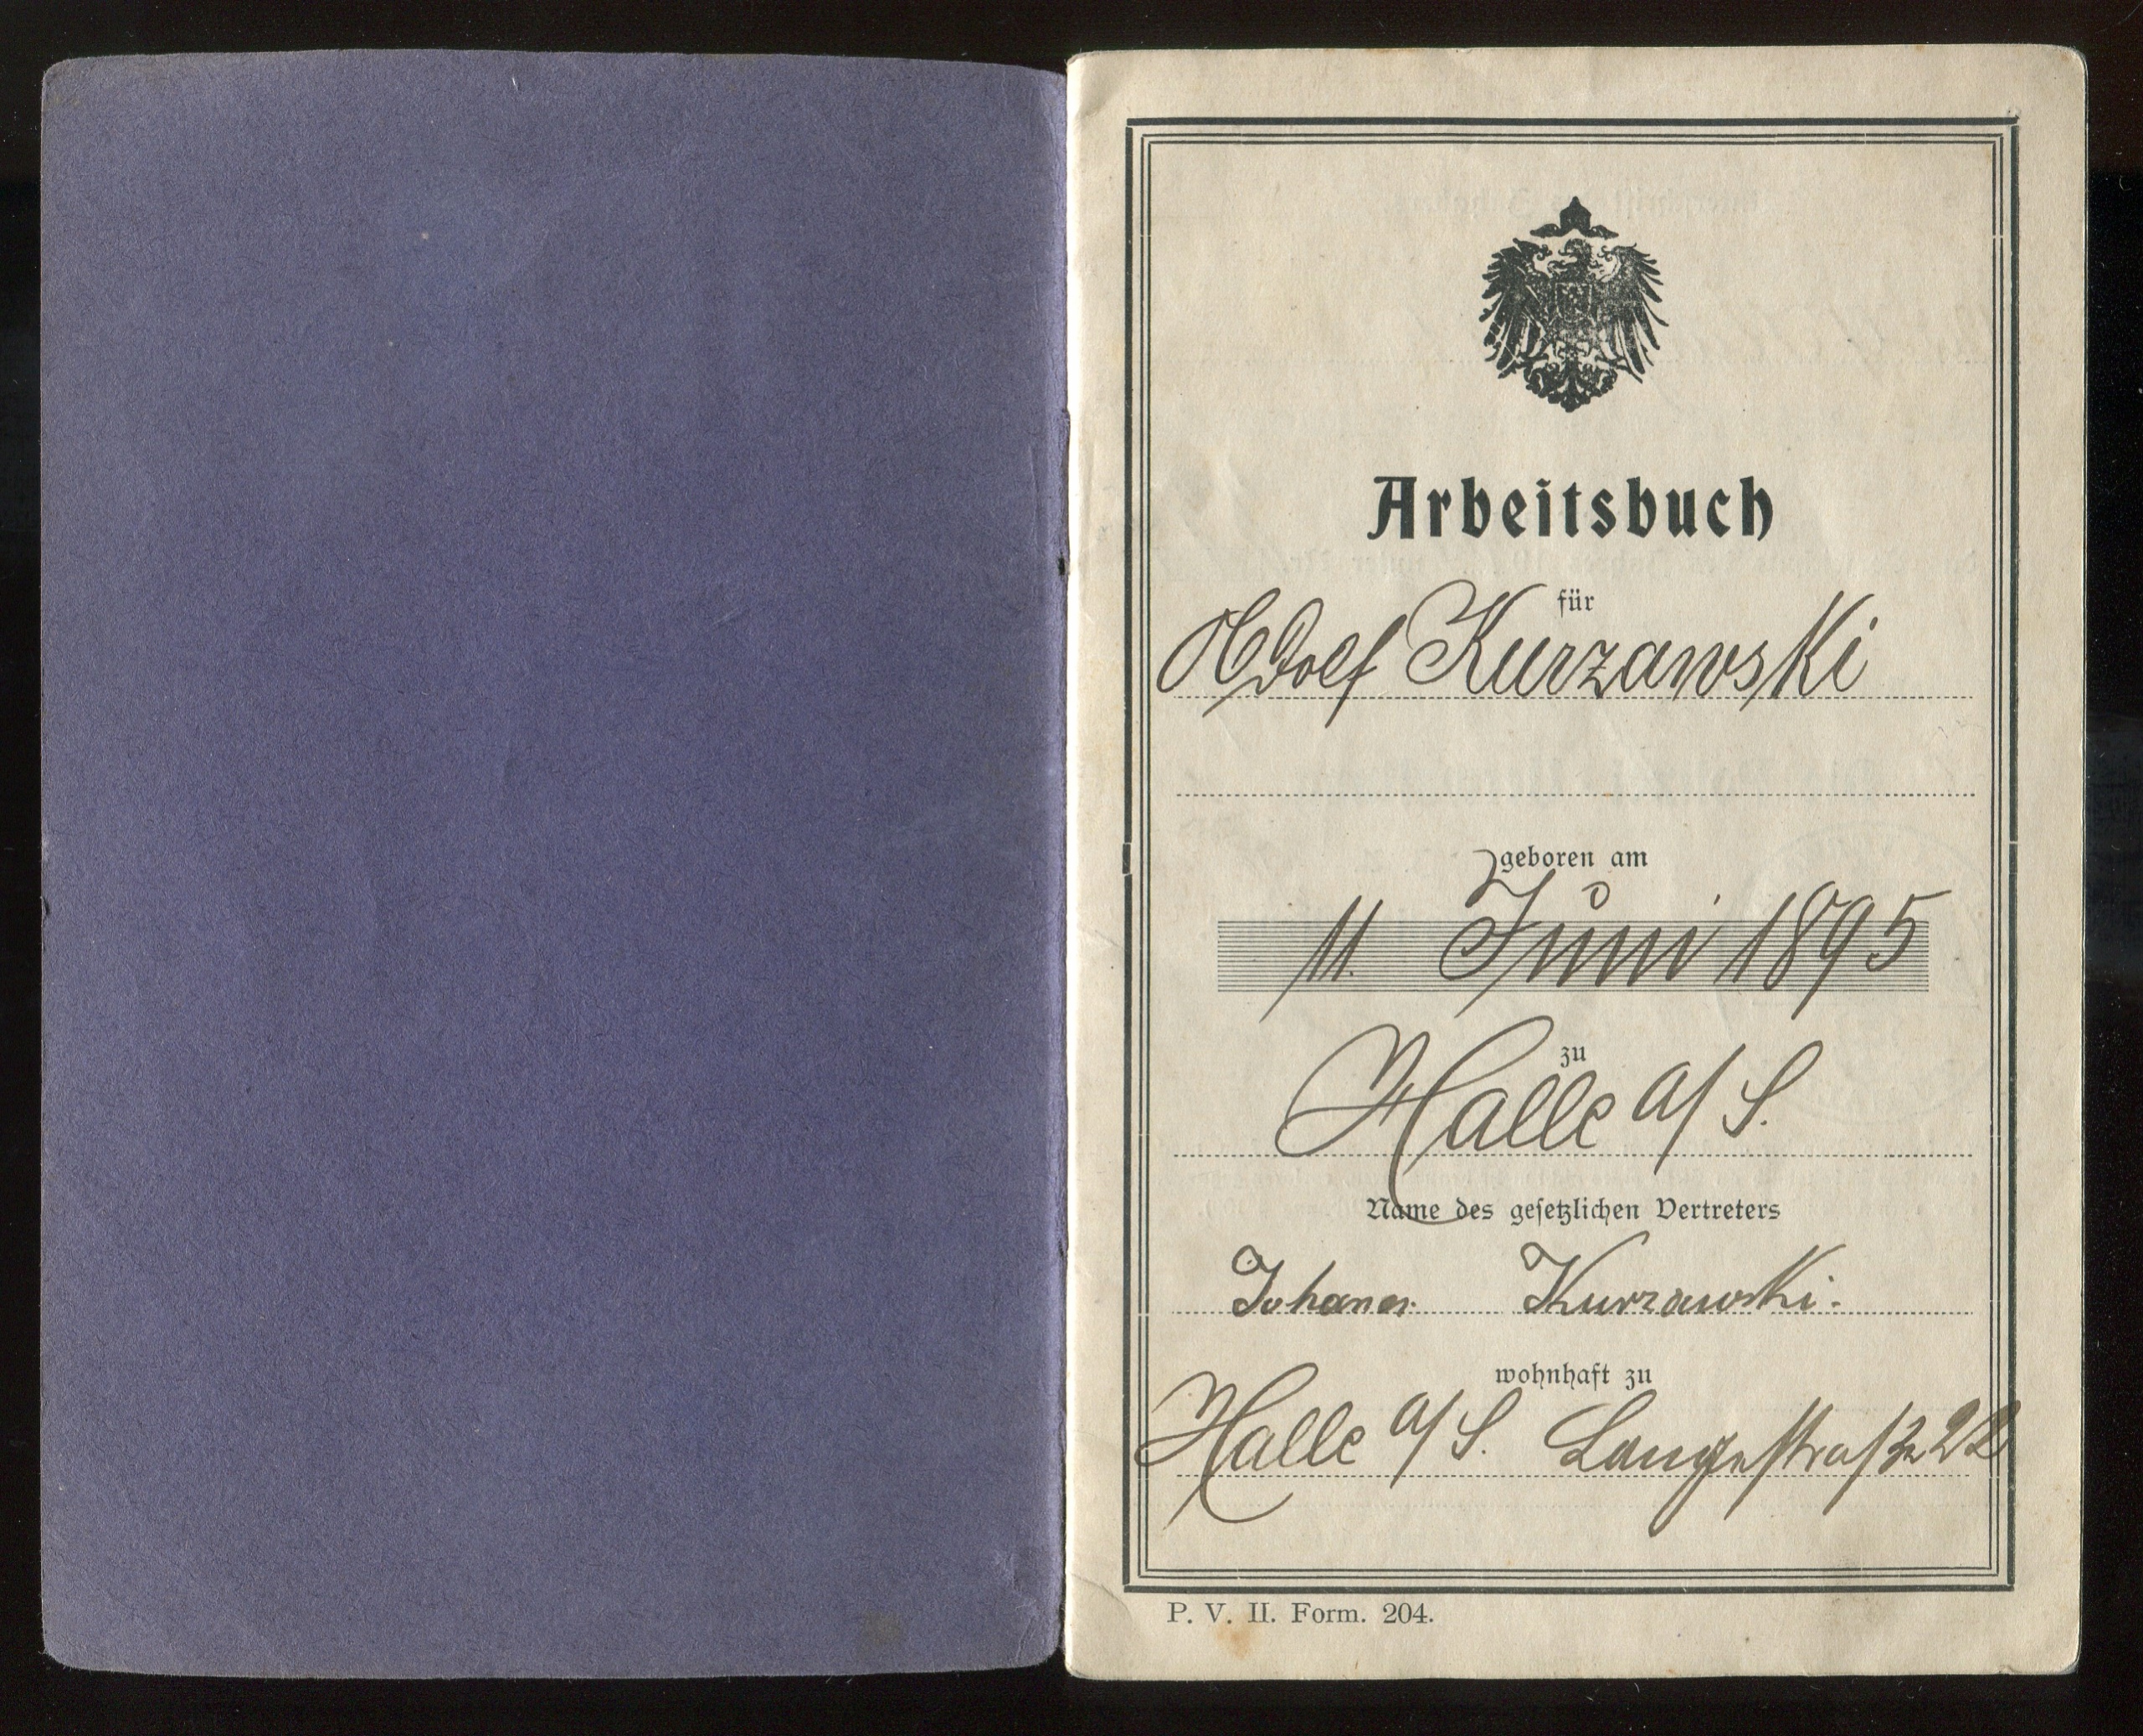 Arbeitsbuch
für
Adolf Kurzawski
geboren am
11. Juni 1895
zu
Halle a/S.
Name des gesetzlichen Vertreters
Johann Kurzawski.
wohnhaft zu
Halle a/S. Langestraße 22
P. V. II. Form. 204.